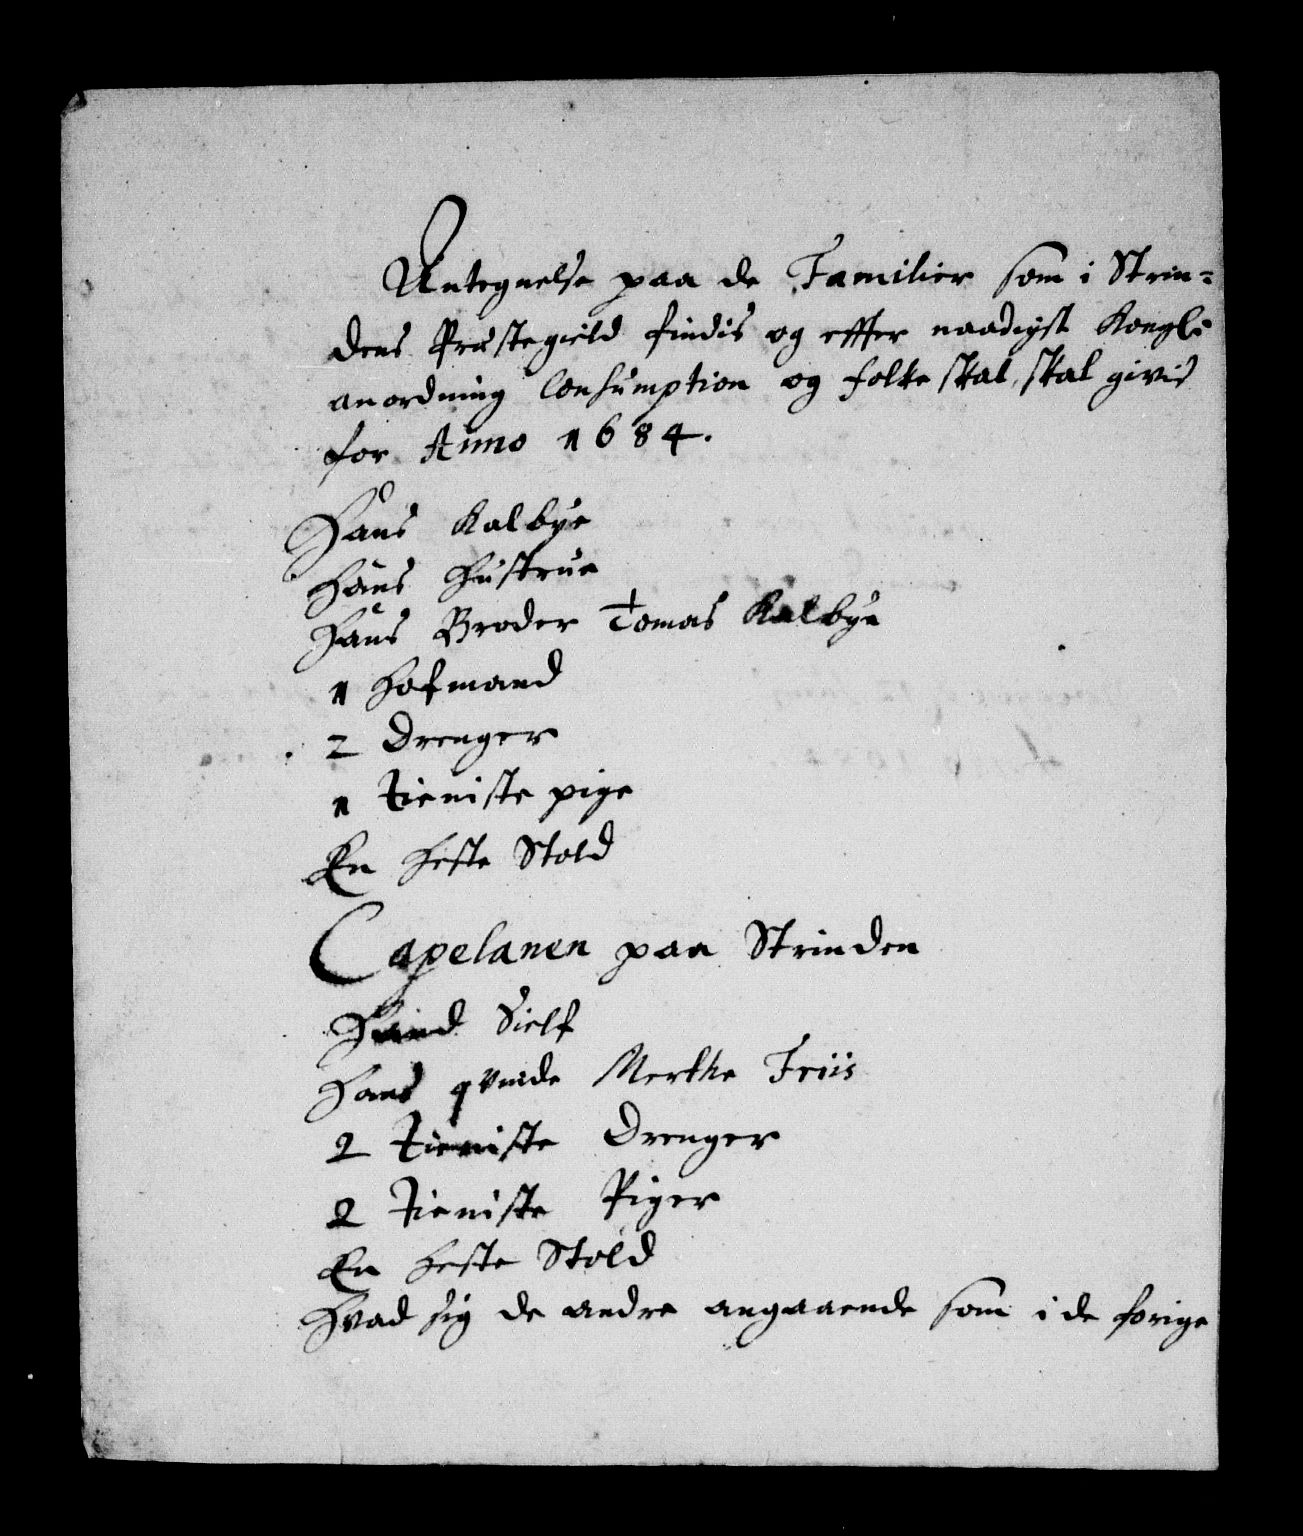 Antegnelse paa de Familier som i Strin=
dens Præstegield findis og effter naadigst Kongl:
anordning Consumption og folke skat, skal givis
for Anno 1684.
Hans Kalbye
Hans Hustrue
Hans Broder Tomas Kalbye
1 Hofmand
2 Drenger
1 tieniste pige
En Heste Stold
Capelanen paa Strinden
Hand Sielf
Hans qvinde Merthe Friis
2 tieniste Drenger
2 tieniste Piger
En Heste Stold
Hvad sig de andre angaaende som i de forige